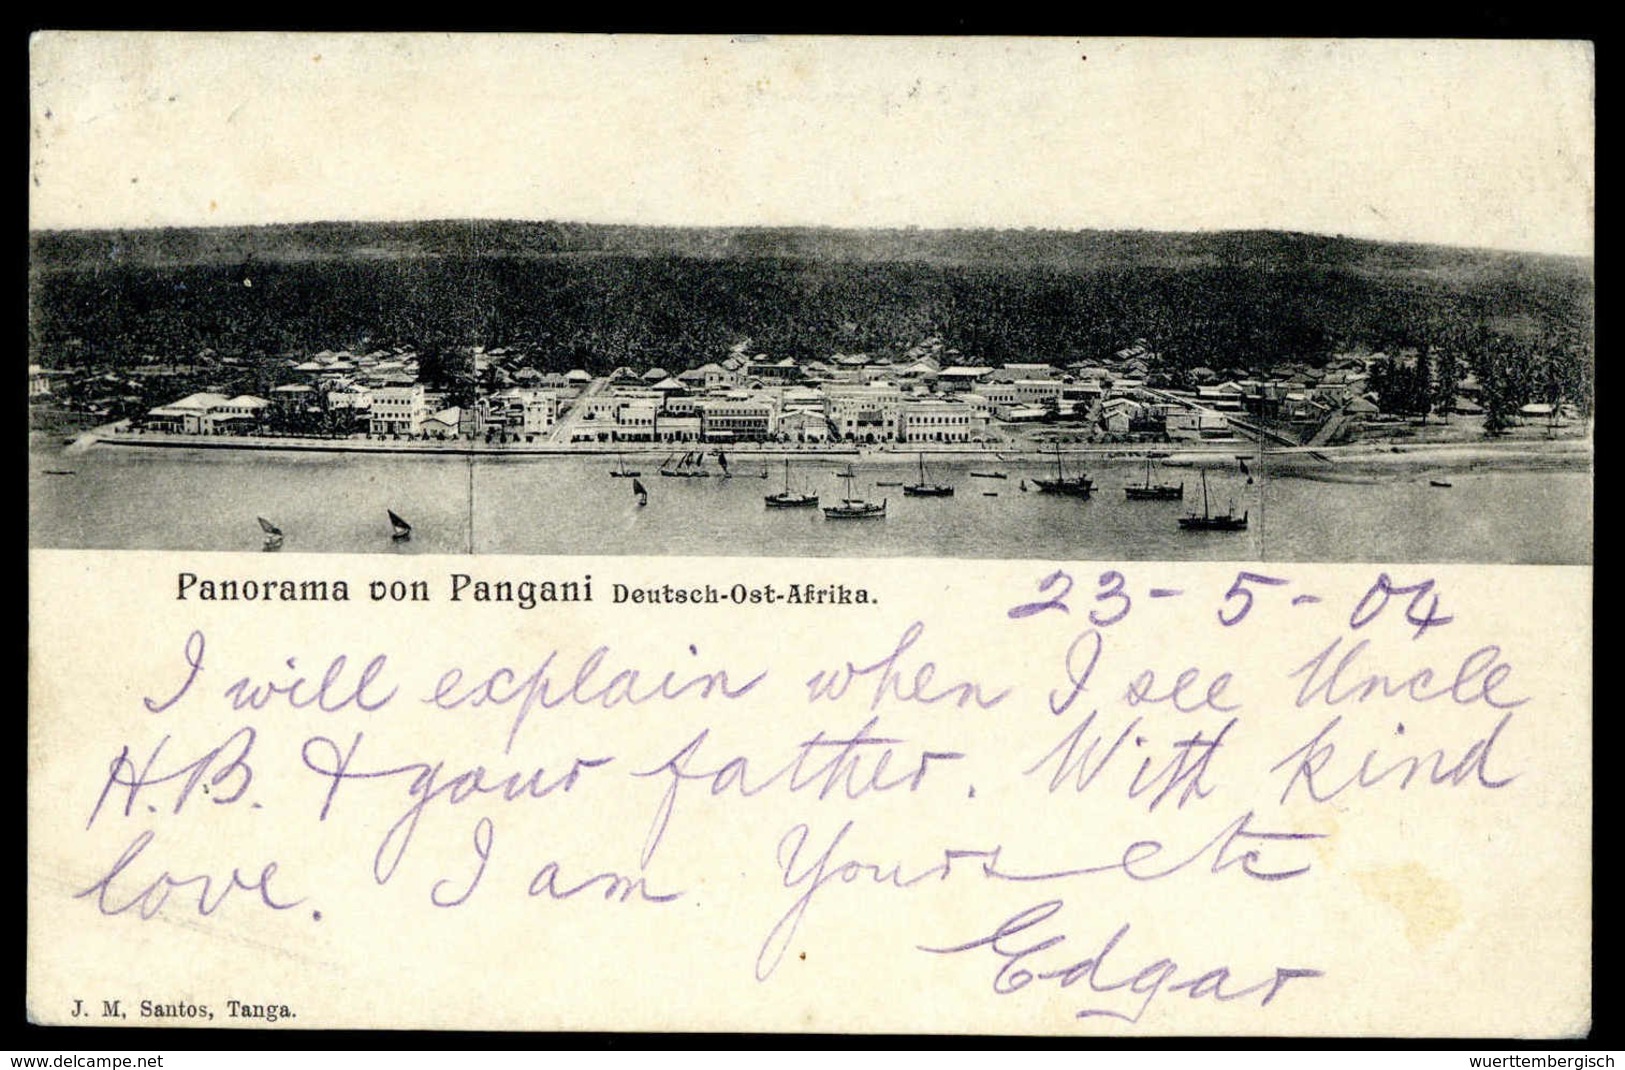 Panorama von Pangani Deutsch-Ost-Afrika.
23-5-04
I will explain when I see Uncle
H.B. & your father. With kind
love. I am Yours etc
Edgar
J. M, Santos, Tanga.
www.delcampe.net
wuerttembergisch